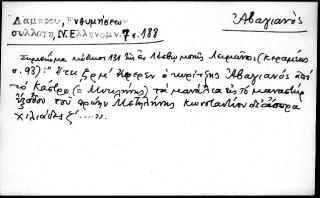 Λάμπρου, Ἐνθυμήσεων
συλλογή, Ν. Ἑλληνομν. 7 σ. 188
Ἀβαγιανός
Σημείωμα κώδικος 131 τῆς ἐν Λέσβῳ μονῆς Λειμῶνος (Κεραμέως
σ. 93): "Ἔτει ἤφερεν ὁ κυρίτζης Ἀβαγιανός ἀπό
τό κάστρο (= Μυτιλήνης) τά μανάλια εἰς τό μαναστήρ
ἐξόδου τοῦ πρώην Μυτιλήνης Κωνσταντίου δι' ἄσπρα
χιλιάδες ζ´ ....».